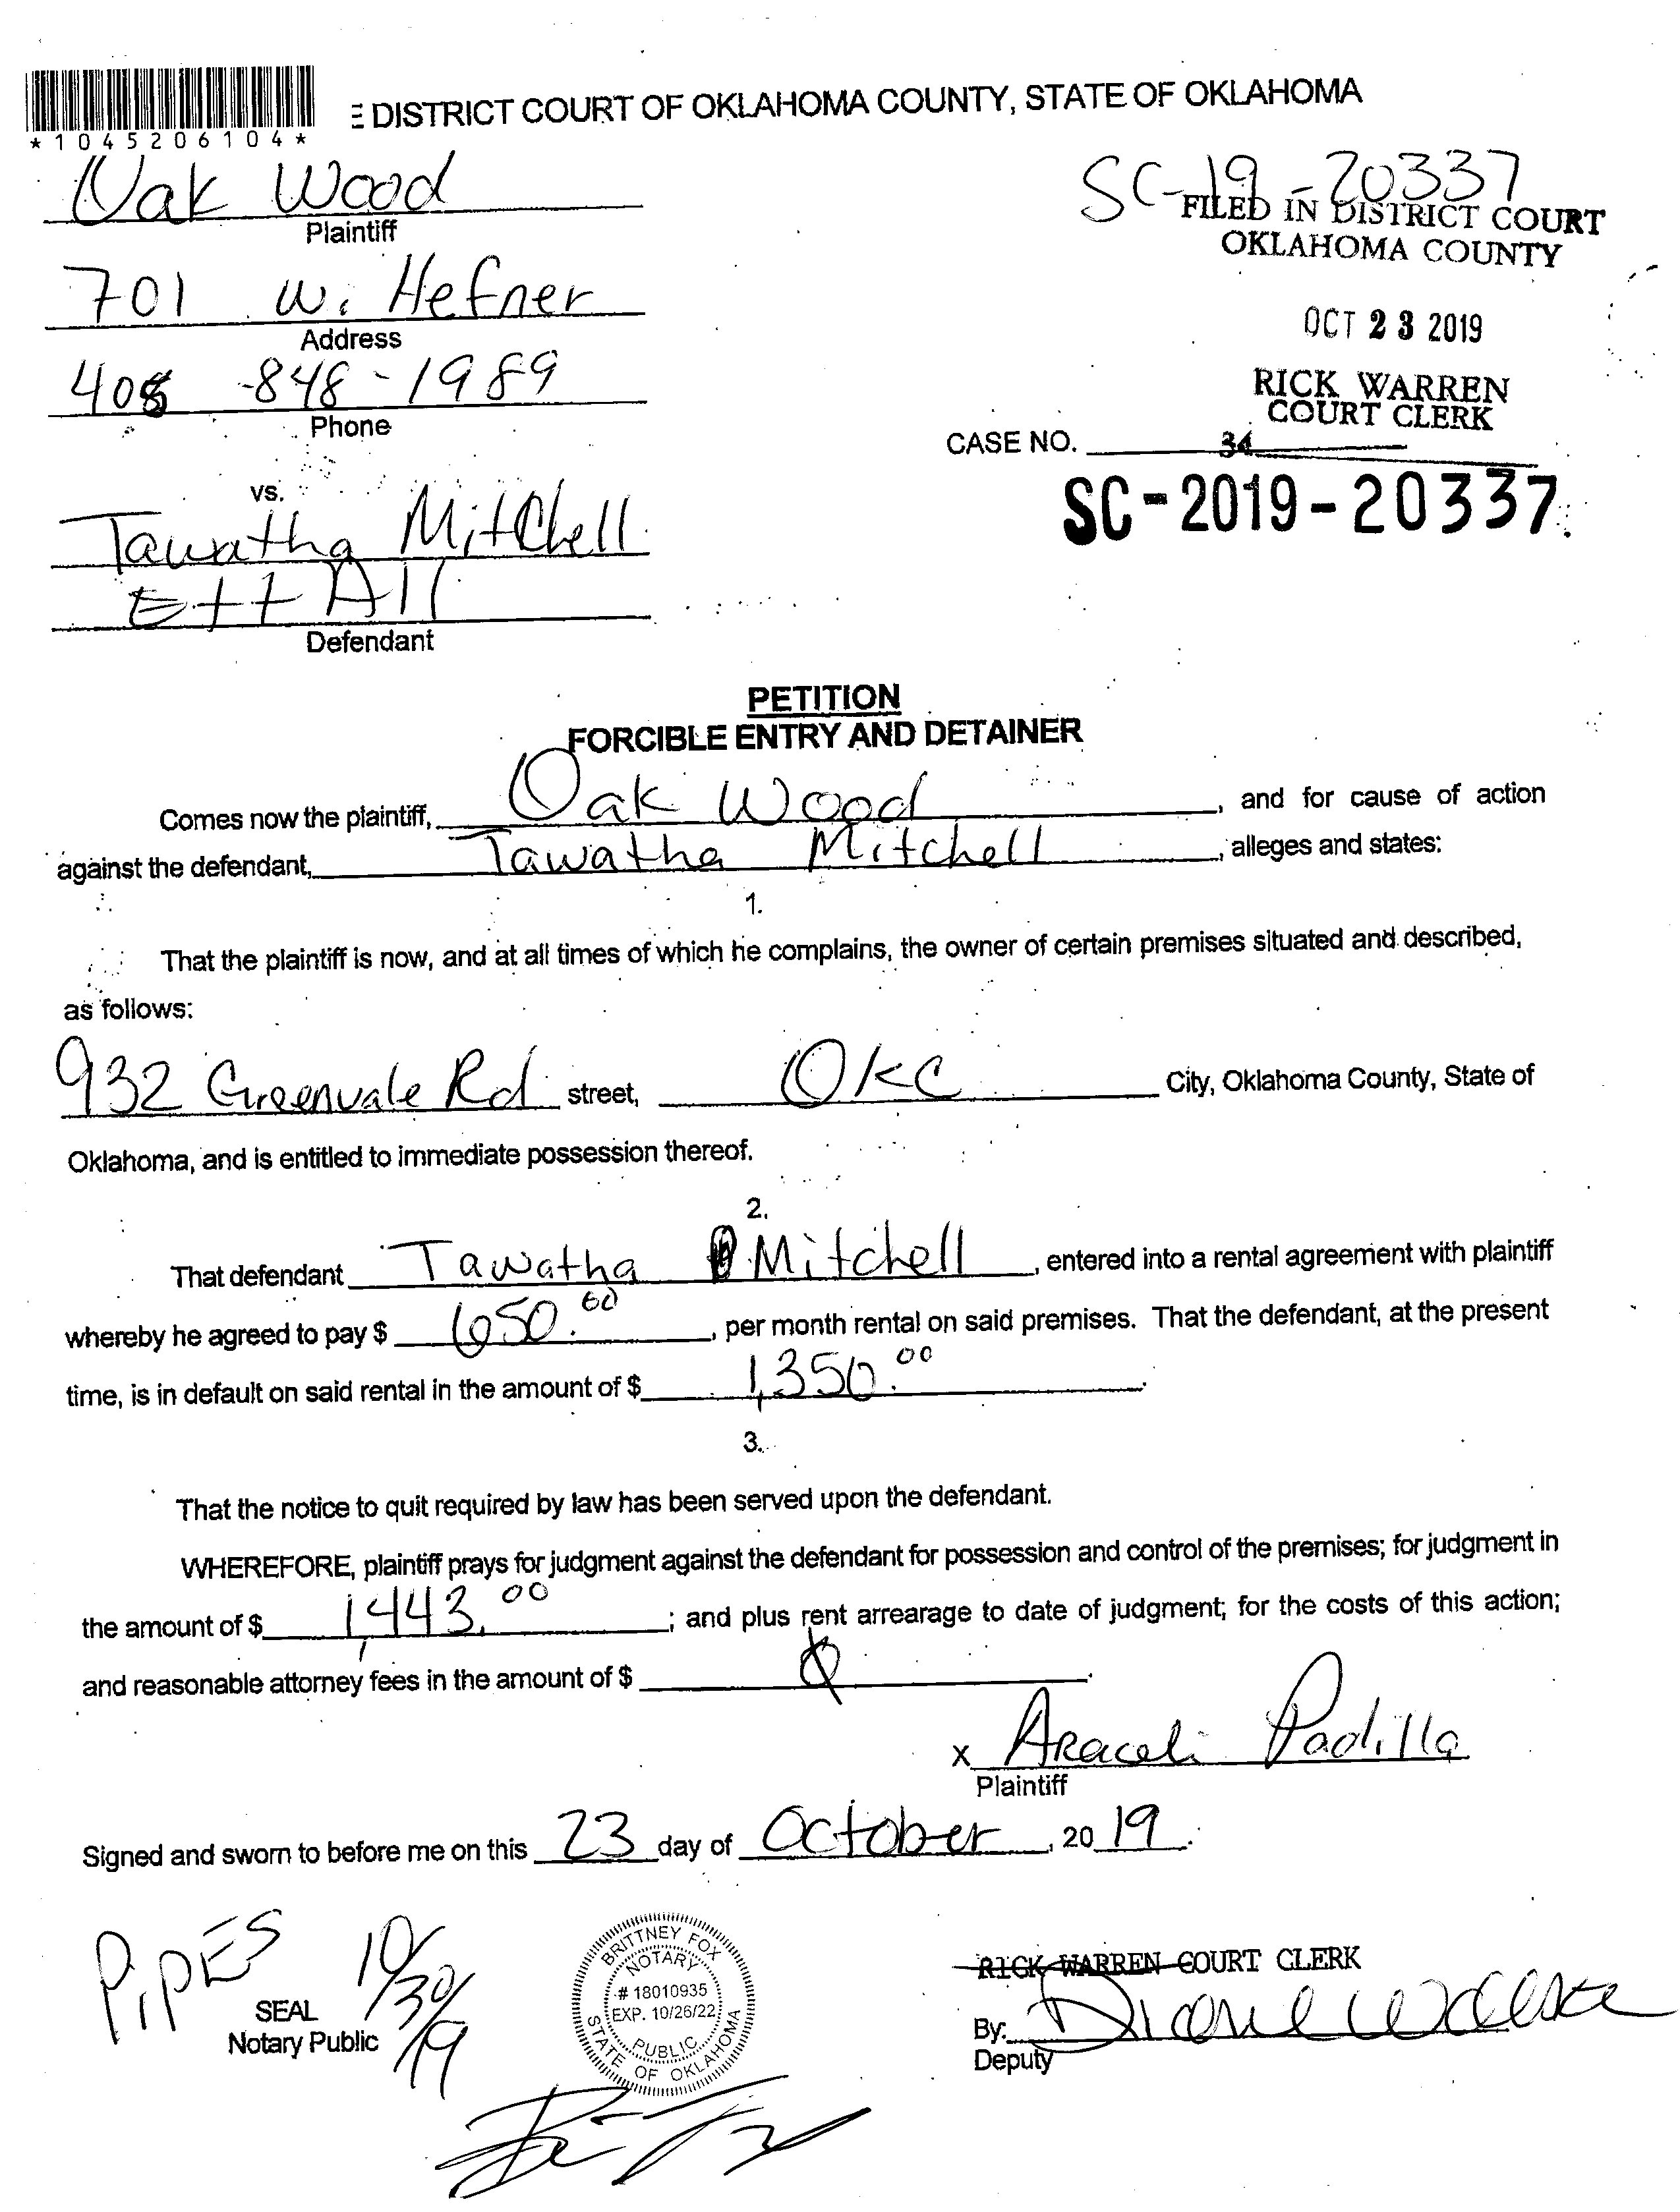 E DISTRICT COURT OF OKLAHOMA COUNTY, STATE OF OKLAHOMA
*1045206104*
Oak Wood
Plaintiff
SC-19-20337
FILED IN DISTRICT COURT
OKLAHOMA COUNTY
701 W. Hefner
Address
OCT 23 2019
408-848-1989
Phone
RICK WARREN
COURT CLERK
CASE NO. 34
SC-2019-20337
vs.
Tawatha Mitchell
Ett All
Defendant
PETITION
FORCIBLE ENTRY AND DETAINER
Comes now the plaintiff, Oak Wood, and for cause of action
against the defendant, Tawatha Mitchell, alleges and states:
1.
That the plaintiff is now, and at all times of which he complains, the owner of certain premises situated and described,
as follows:
932 Greenvale Rd street, OKC City, Oklahoma County, State of
Oklahoma, and is entitled to immediate possession thereof.
2.
That defendant Tawatha Mitchell, entered into a rental agreement with plaintiff
whereby he agreed to pay $ 650.00, per month rental on said premises. That the defendant, at the present
time, is in default on said rental in the amount of $ 1,350.00.
3.
That the notice to quit required by law has been served upon the defendant.
WHEREFORE, plaintiff prays for judgment against the defendant for possession and control of the premises; for judgment in
the amount of $ 1,443.00; and plus rent arrearage to date of judgment; for the costs of this action;
and reasonable attorney fees in the amount of $ 0.
x Araceli Padilla
Plaintiff
Signed and sworn to before me on this 23 day of October, 2019.
PIPES 10/30/19
SEAL
Notary Public
BRITTNEY FOX
NOTARY
# 18010935
EXP. 10/26/22
PUBLIC
STATE OF OKLAHOMA
RICK WARREN COURT CLERK
By: Diane Wallace
Deputy